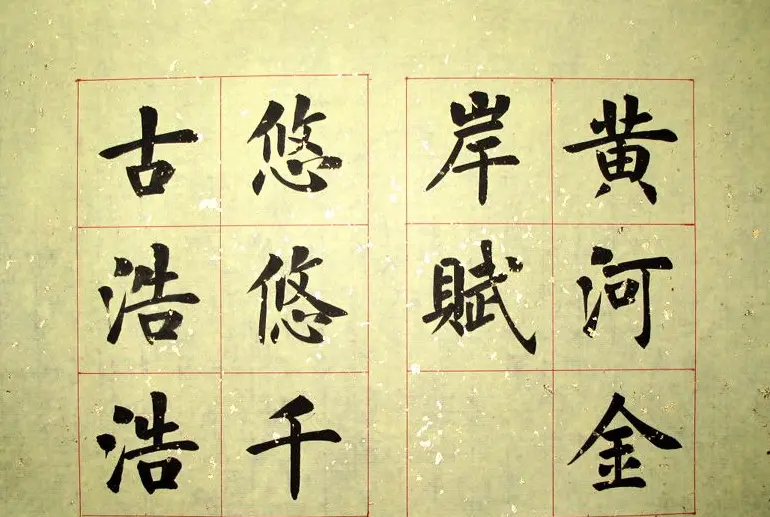 黄河金
岸賦
悠悠千
古浩浩